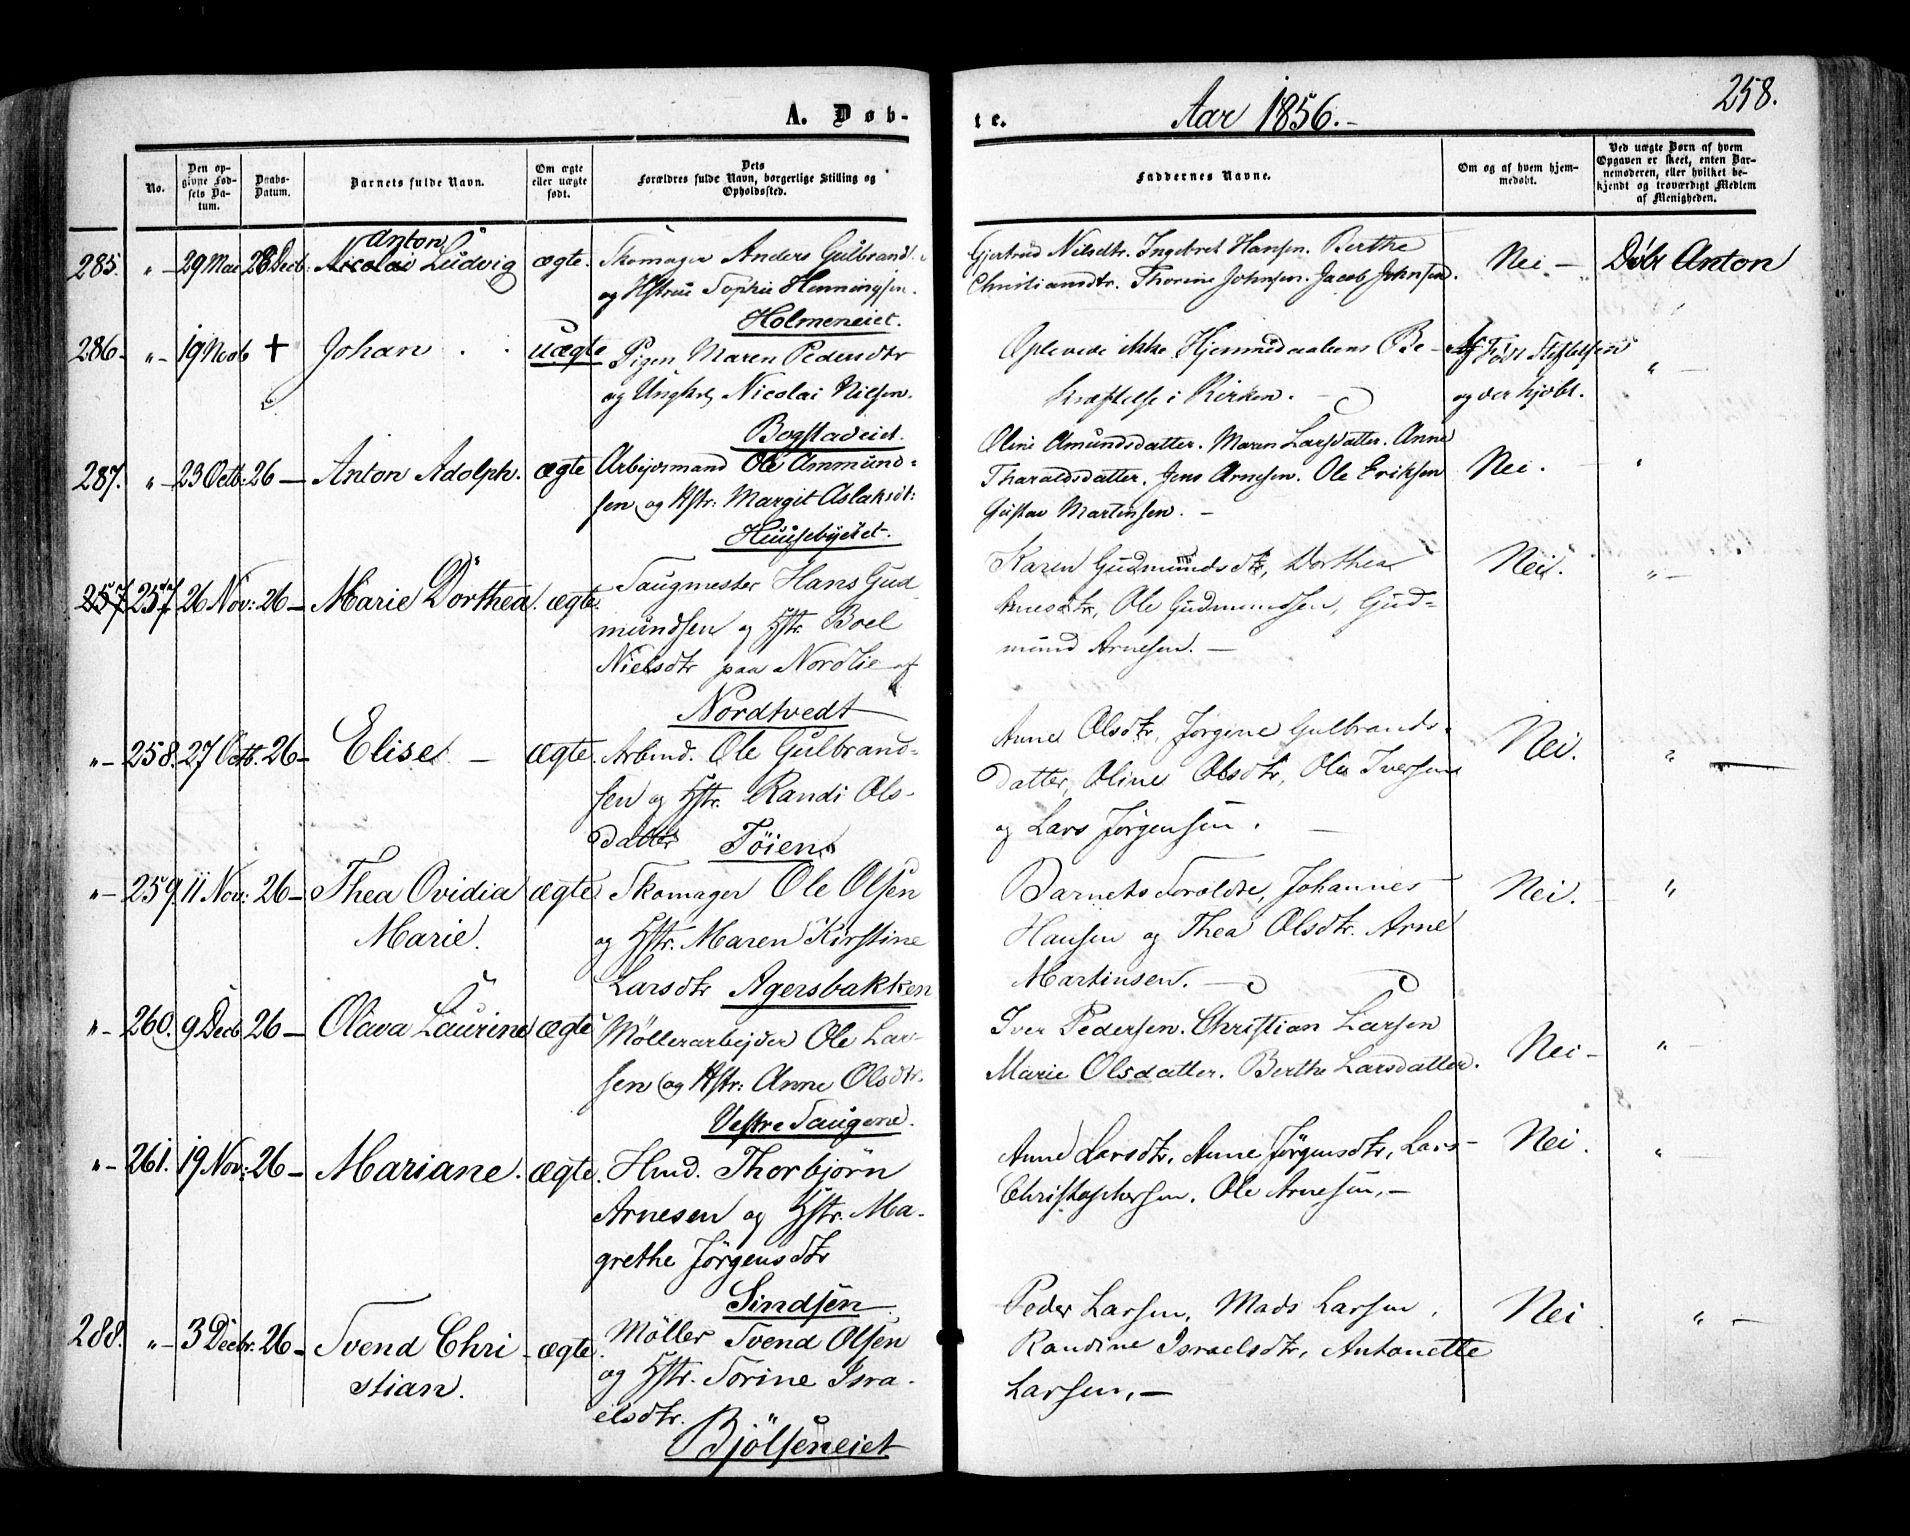 A. Døb-
te.
Aar 1856.-
258.
No.
Den op-
givne Fød-
sels Da-
tum.
Daabs-
Datum.
Barnets fulde Navn.
Om ægte
eller uægte
født.
Dets
Forældres fulde Navn, borgerlige Stilling og
Opholdssted.
Faddernes Navne.
Om og af hvem hjem-
medøbt.
Ved uægte Børn af hvem
Opgaven er skeet, enten Bar-
nemoderen, eller hvilket be-
kjendt og troværdigt Medlem
af Menigheden.
Anton
285. „- 29 Mai 28 Decb. Nicolai Ludvig ægte. Skomager Anders Gulbrand
og Hstrue Sophie Henningsen.
Holmeneiet.
Gjertrud Nilsdtr. Ingebret Hansen. Berthe
Christiansdtr. Thorine Johnsen. Jacob Johnsen.
Nei - Døbt Anton
286. „- 19 Novb + Johan . . uægte Pigen Maren Pedersdtr
og Ungkl. Nicolai Nilsen.
Bogstadeiet.
Oplevede ikke Hjemmedaabens Be-
kræftelse i Kirken. -
Af Føds Stiftelsen
og der kjøbt.
„ -
287. „- 23 Octb: 26 - Anton Adolph. ægte Arbejdsmand Ole Ammund-
sen og Hstr: Margit Aslaksdt:
Huusebyeiet.
Oline Amundsdatter. Maren Larsdatter. Anne
Tharaldsdatter. Jens Arnesen. Ole Eriksen
Gustav Martinsen. -
Nei. - „
257 257 26 Nov: 26 - Marie Dorthea. ægte. Saugmester Hans Gud-
mundsen og Hstr. Boel
Nielsdtr paa Nordlie af
Nordtvedt
Karen Gudmundsdtr, Dorthea
Arnesdtr, Ole Gudmundsen, Gud-
mund Arnesen. -
Nei. „-
„- 258. 27 Octb. 26 - Elise. - ægte. Arbmd. Ole Gulbrand-
sen og Hstr. Randi Ols-
datter Tøien
Anne Olsdtr, Jørgine Gulbrands-
datter, Oline Olsdtr, Ole Iversen
og Lars Jørgensen. -
Nei. „
„- 259. 11 Nov: 26 - Thea Ovidia ægte. Skomager Ole Olsen
Marie. og Hstr. Maren Kirstine
Larsdtr Agersbakken
Barnets Forældre, Johannes
Hansen og Thea Olsdtr. Arne
Martinsen. -
Nei. „
„- 260. 9 Decb 26 - Olava Laurine ægte Møllerarbejder Ole Lar-
sen og Hstr: Anne Olsdtr.
Vestre Saugene.
Iver Pedersen. Christian Larsen
Marie Olsdatter. Berthe Larsdatter.
Nei - „ -
„- 261. 19 Nov: 26 - Mariane. ægte. Hmd. Thorbjørn
Arnesen og Hstr. Ma-
grethe Jørgensdtr
Sindsen
Anne Larsdtr, Anne Jørgensdtr, Lars
Christophersen. Ole Arnesen, -
Nei. „ -
288. „- 3 Decbr. 26 - Svend Chri- ægte. Møller Svend Olsen
stian. og Hstr. Torine Isra-
elsdtr.
Bjølseneiet
Peder Larsen, Mads Larsen,
Randine Israelsdtr, Antonette
Larsen, -
Nei „ -